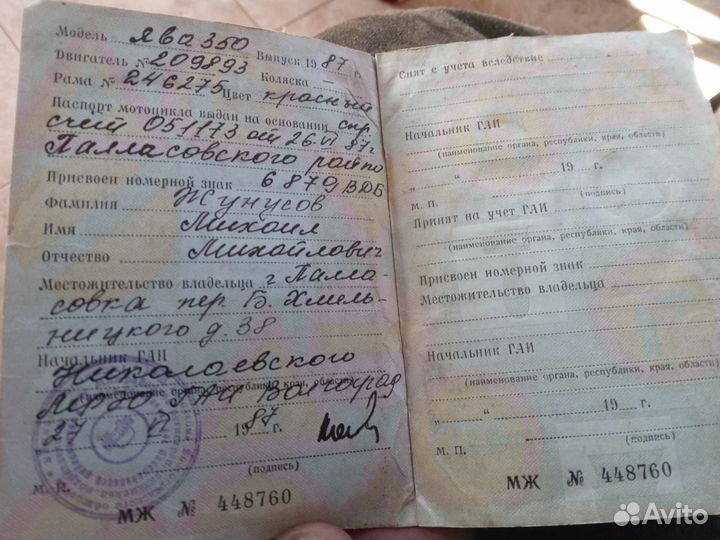 Модель Ява 350 Выпуск 1987 г.
Двигатель № 209893 Коляска –
Рама № 246275 Цвет красный
Паспорт мотоцикла выдан на основании спр.
счет 051173 от 26-VI 87г
Палласовского райпо
Присвоен номерной знак 6879 ВДБ
Фамилия Жунусов
Имя Михаил
Отчество Михайлович
Местожительство владельца г Палла-
совка пер. Б. Хмель-
ницкого д. 38
Начальник ГАИ
Николаевского
(наименование органа, республики, края, области)
МРЭО ГАИ Волгоград
27 1987 г.
(подпись)
М. П.
МЖ № 448760
Снят с учета вследствие
Начальник ГАИ
(наименование органа, республики, края, области)
„ “ 19 г.
М. П. (подпись)
Принят на учет ГАИ
(наименование органа, республики, края, области)
Присвоен номерной знак
Местожительство владельца
Начальник ГАИ
(наименование органа, республики, края, области)
„ “ 19 г.
М. П.
(подпись)
МЖ № 448760
Avito